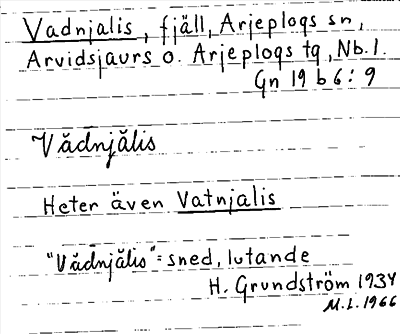 Vadnjalis, fjäll, Arjeplogs sn,
Arvidsjaurs o. Arjeplogs tg, Nb.l.
Gn 19 b 6:9
Vădnjălis
Heter även Vatnjalis
"Vădnjălis" = sned, lutande
H. Grundström 1934
M.L. 1966